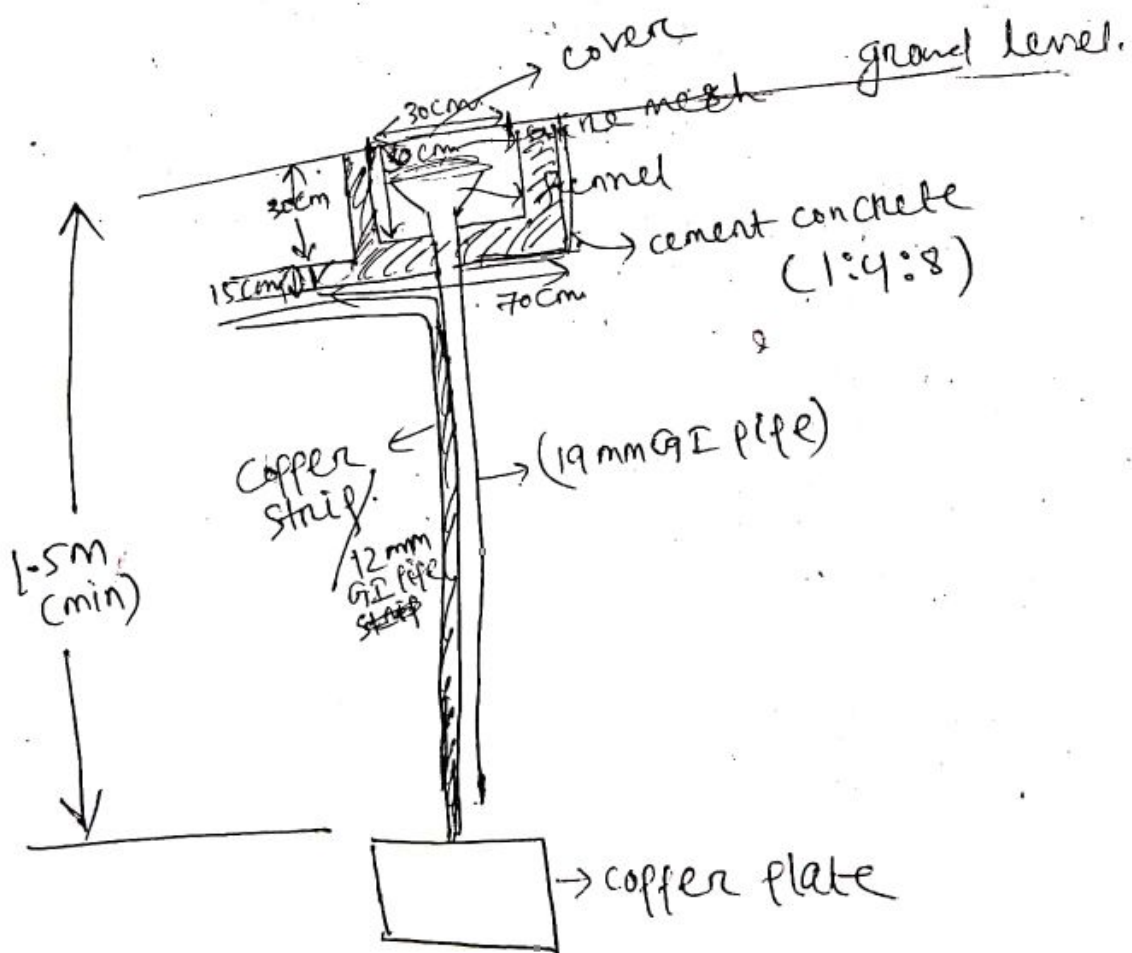 cover
ground level.
30cm
wire mesh
30cm
funnel
cement concrete
(1:4:8)
15cm
70cm
(19mm GI pipe)
copper
strip/
12mm
GI pipe
strip
1.5m
(min)
copper plate